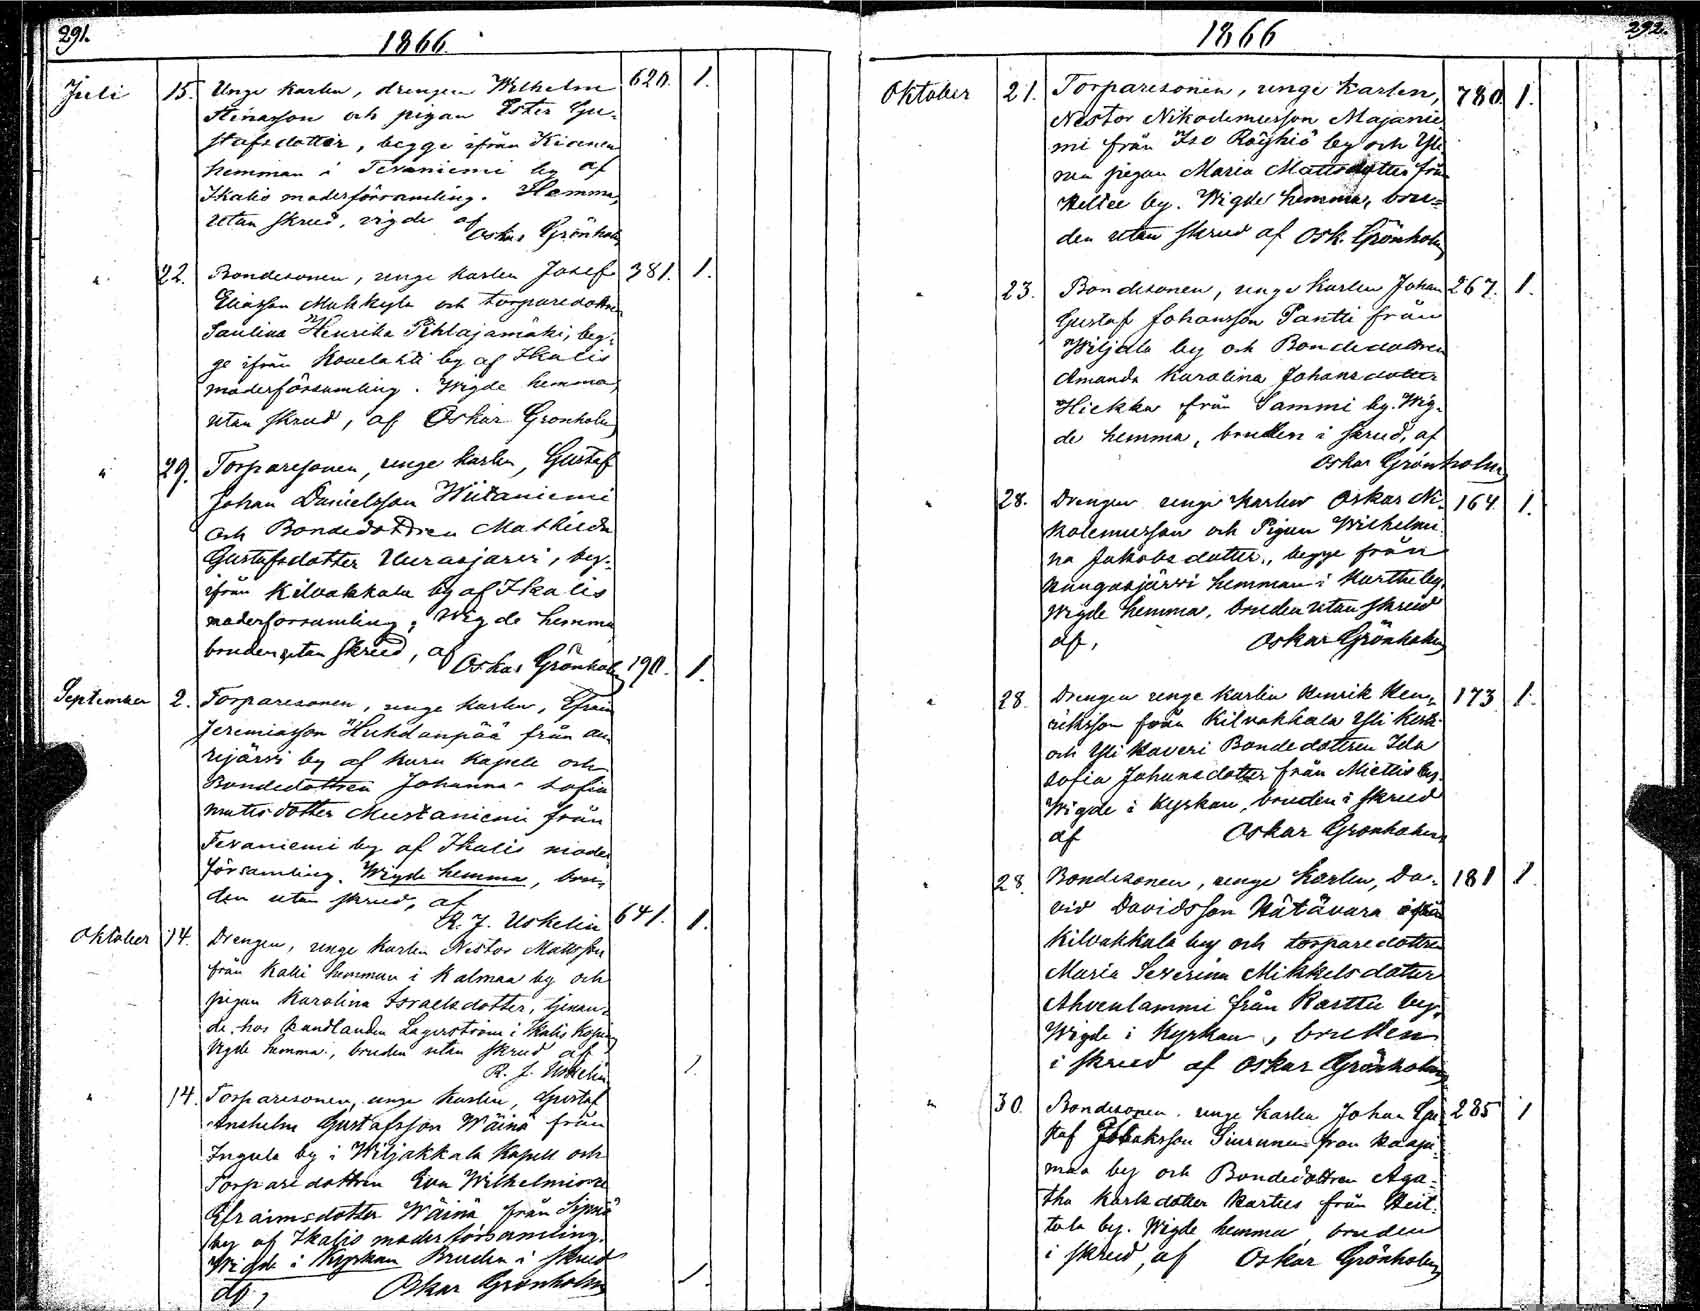 291.
1866
Juli 15. Unge karlen, drengen Wilhelm 620. 1.
och pigan Ester Gu-
stafsdotter, begge ifrån
hemman i Tevaniemi by af
Ikalis moderförsamling. Hemma,
utan skrud, vigde af
Oskar Grönholm
" 22. Bondesonen, unge karlen Josef 381. 1.
Eliasson Makkyla och torparedottren
Paulina Henrika Pihlajamäki, beg-
ge ifrån Kovelahti by af Ikalis
moderförsamling. Wigde hemma,
utan skrud, af Oskar Grönholm
" 29. Torparesonen, unge karlen, Gustaf
Johan Danielsson Wiitaniemi
och Bondedottren Mathilda
Gustafsdotter Uurasjärvi, beg-
ifrån Kilvakkala by af Ikalis
moderforsamling; Wigde hemma
bruden utan skrud, af
Oskar Grönholm 190. 1.
September 2. Torparesonen, unge karlen, Efraim
Jeremiasson Huhdanpää från Au-
rejärvi by af Kuru Kapell och
Bondedottren Johanna Sofia
Mattsdotter Mustaniemi från
Tevaniemi by af Ikalis moder
församling. Wigde hemma, bru-
den utan skrud, af
R. J. Uskelin 641. 1.
Oktober 14. Drengen, unge karlen Nestor Mattsson
från Kalli hemman i Kalmaa by och
pigan Karolina Israelsdotter, tjenan-
de hos Handlanden Lagerström i Ikalis Köping
Vigde hemma, bruden utan skrud af
R. J. Uskelin 1.
" 14. Torparesonen, unge karlen, Gustaf
Anshelm Gustafsson Wäinä från
Ingula by i Wiljakkala Kapell och
Torparedottren Eva Wilhelmina
Efraimsdotter Wäinä från Sipsiö
by af Ikalis moderförsamling.
Wigde i Kyrkan Bruden i skrud
af, Oskar Grönholm 1.
1866
292.
Oktober 21. Torparesonen, unge karlen, 780. 1.
Nestor Nikodemusson Majanie
mi från Iso Röyhiö by och Yli
nen pigan Maria Mattsdotter från
Heltee by. Wigde hemma, bru-
den utan skrud af Osk. Grönholm
" 23. Bondesonen, unge karlen Johan 267. 1.
Gustaf Johansson Pantti från
Wiljala by och Bondedottren
Amanda Karolina Johansdotter
Hiekka från Sammi by. Wig-
de hemma, bruden i skrud, af
Oskar Grönholm
" 28. Drengen unge karlen Oskar Ni- 164. 1.
kolemusson och Pigan Wilhelmi
na Jakobsdotter, begge från
Kangasjärvi hemman i Karthe by.
Wigde hemma, bruden utan skrud
af, Oskar Grönholm
" 28. Drengen unge karlen Henrik Hen- 173 1.
riksson från Kilvakkala Yli Keski
och Yli Kaveri Bondedottren Ida
Sofia Johansdotter från Miettis by.
Wigde i Kyrkan, bruden i skrud
af Oskar Grönholm
" 28. Bondesonen, unge karlen, Da- 181 1
vid Davidsson Hätävara ifrån
Kilvakkala by och torparedottren
Maria Severina Mikkelsdotter
Ahvenlammi från Karttu by.
Wigde i Kyrkan, bruden
i skrud af Oskar Grönholm
" 30. Bondesonen unge karlen Johan Gu- 285 1
staf Isaksson Siurunen från
maa by och Bondedottren Aga-
tha Karlsdotter Karttes från Heit-
tola by. Wigde hemma, bruden
i skrud, af Oskar Grönholm